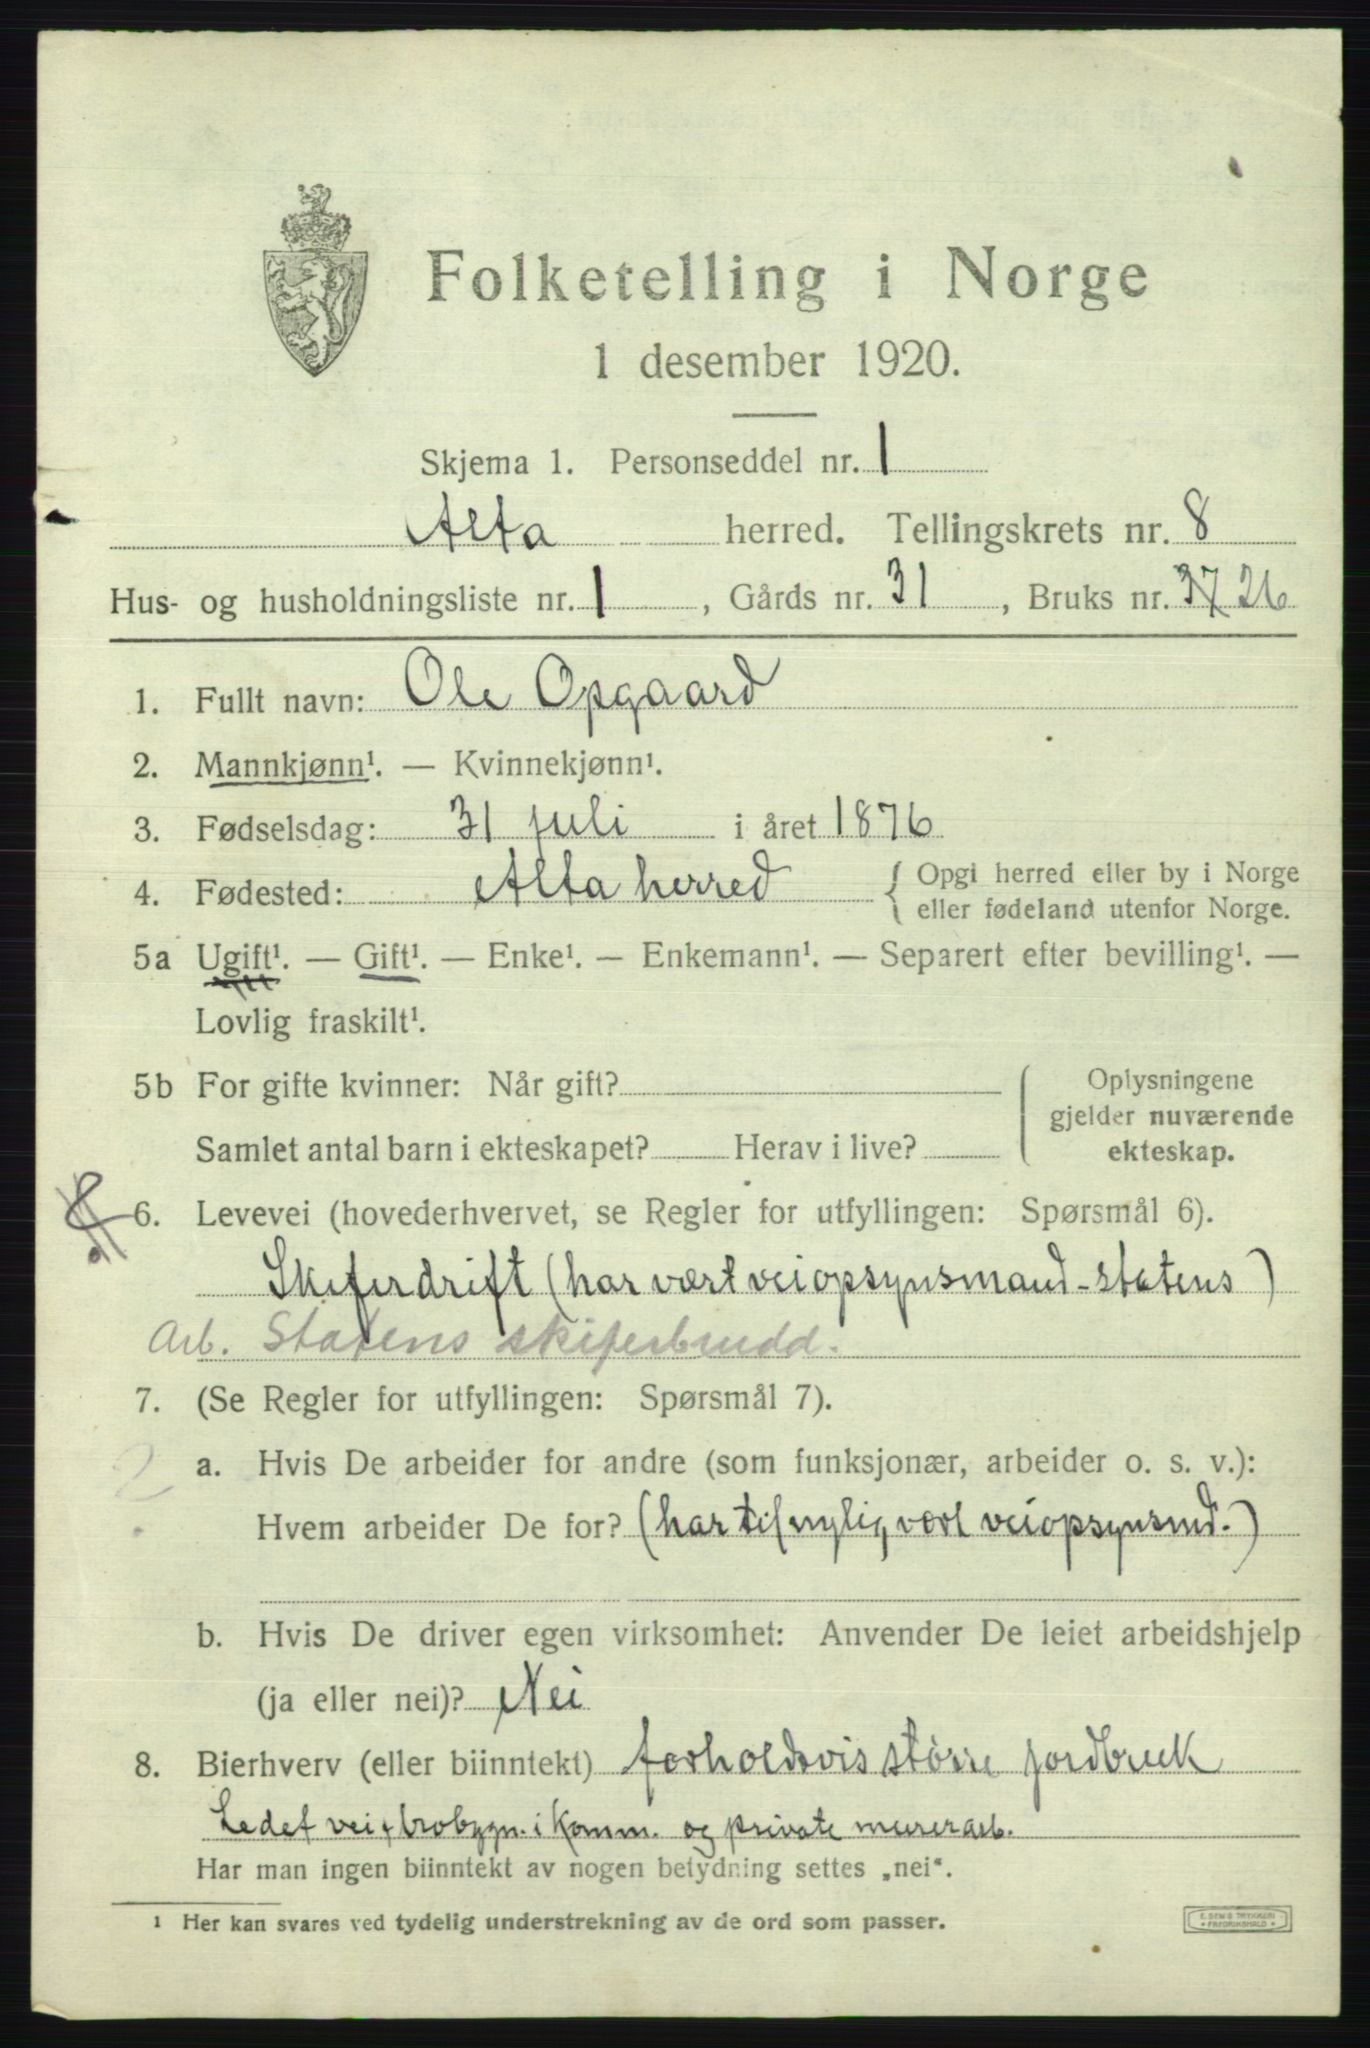 Folketelling i Norge
1 desember 1920.
Skjema 1. Personseddel nr. 1
Alta herred. Tellingskrets nr. 8
Hus- og husholdningsliste nr. 1, Gårds nr. 31, Bruks nr. 37 26
1. Fullt navn: Ole Opgaard
2. Mannkjønn¹. — Kvinnekjønn¹.
3. Fødselsdag: 31 juli i året 1876
4. Fødested: Alta herred { Opgi herred eller by i Norge
eller fødeland utenfor Norge.
5a Ugift¹. — Gift¹. — Enke¹. — Enkemann¹. — Separert efter bevilling¹. —
Lovlig fraskilt¹.
5b For gifte kvinner: Når gift? { Oplysningene
gjelder nuværende
Samlet antal barn i ekteskapet? Herav i live? ekteskap.
6. Levevei (hovederhvervet, se Regler for utfyllingen: Spørsmål 6).
Skiferdrift (har vært veiopsynsmand - statens)
Arb. Statens skiferbrudd.
7. (Se Regler for utfyllingen: Spørsmål 7).
a. Hvis De arbeider for andre (som funksjonær, arbeider o. s. v.):
Hvem arbeider De for? (har til nylig vært veiopsynsmd.)
b. Hvis De driver egen virksomhet: Anvender De leiet arbeidshjelp
(ja eller nei)? Nei
8. Bierhverv (eller biinntekt) forholdsvis større jordbruk
Ledet vei + brobygn. i Komm. og private murerarb.
Har man ingen biinntekt av nogen betydning settes „nei“.
¹ Her kan svares ved tydelig understrekning av de ord som passer.
E. SEM'S TRYKKERI
FREDRIKSHALD